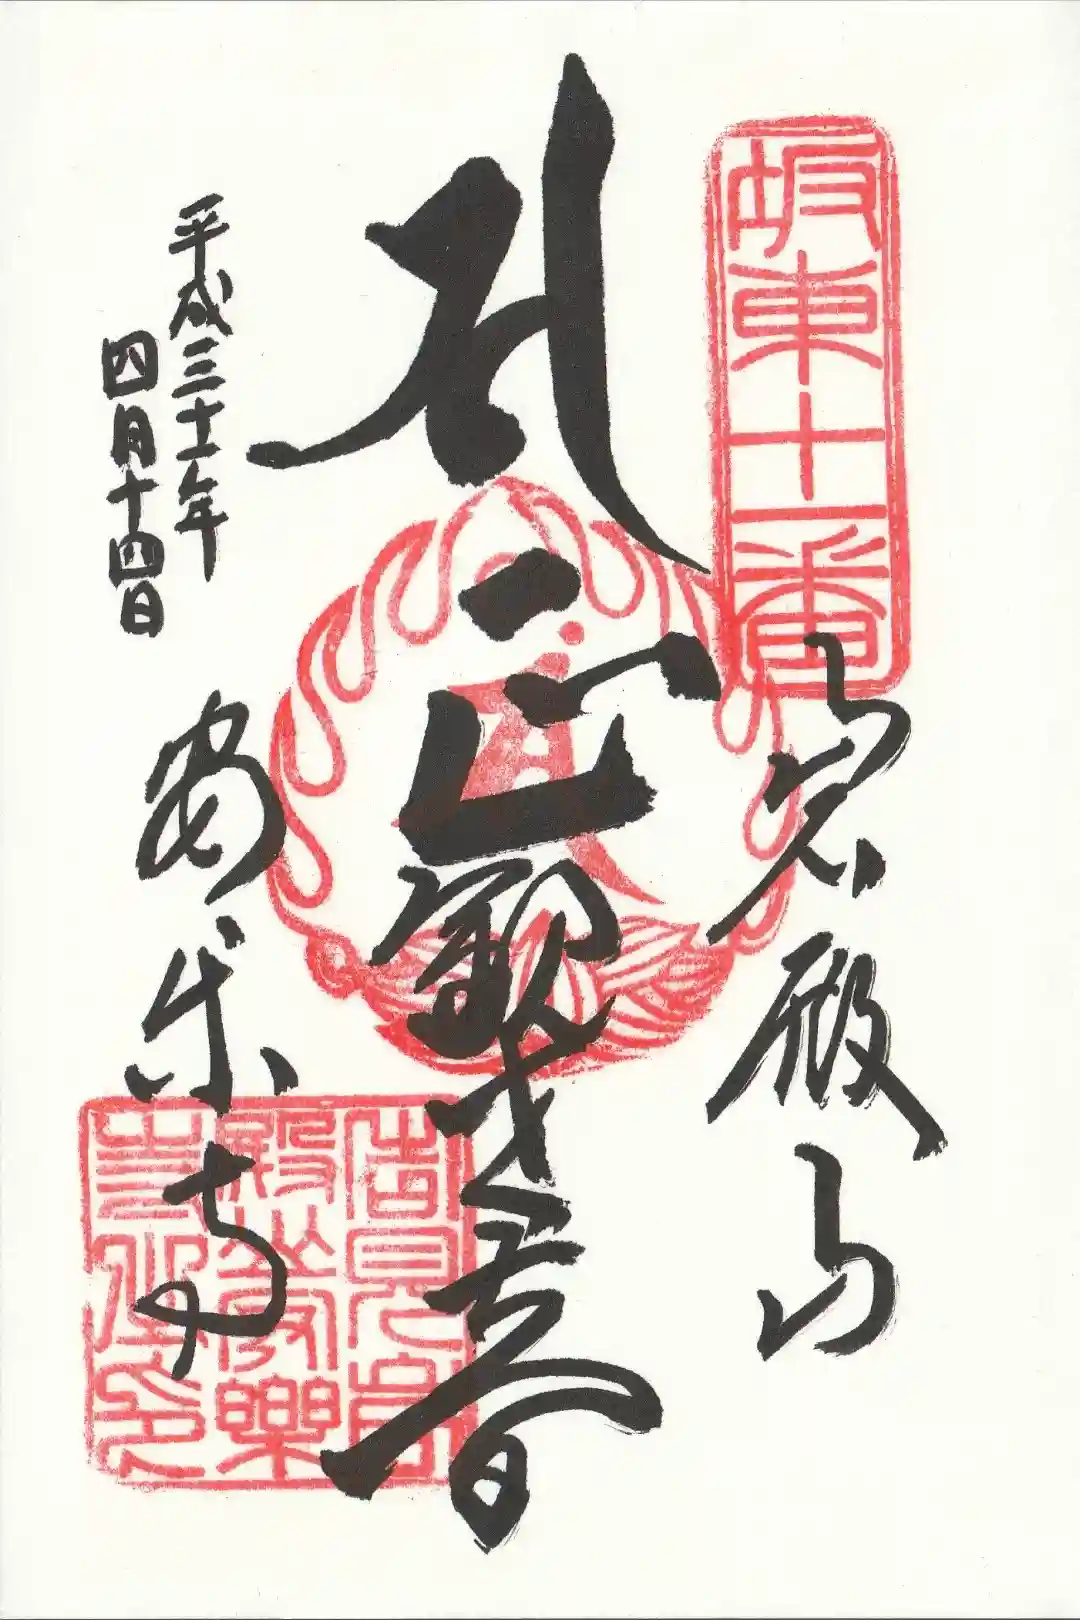 坂東十一番
岩殿山
𑖭
正観世音
平成三十一年
四月十四日
安楽寺